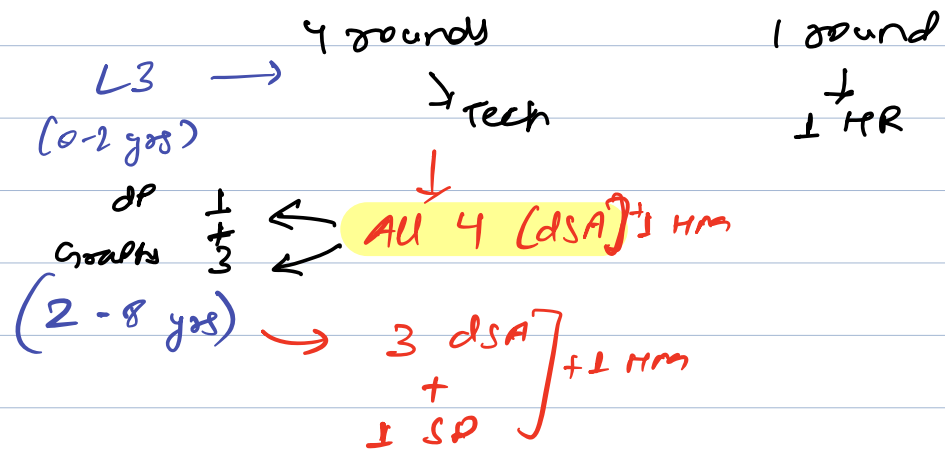 4 rounds 1 round
L3
Tech 1 HR
(0-2 yrs)
dP 1
All 4 [dSA] +1 HM
+
Graphs 3
(2-8 yrs)
3 dSA
+ +1 HM
1 SD